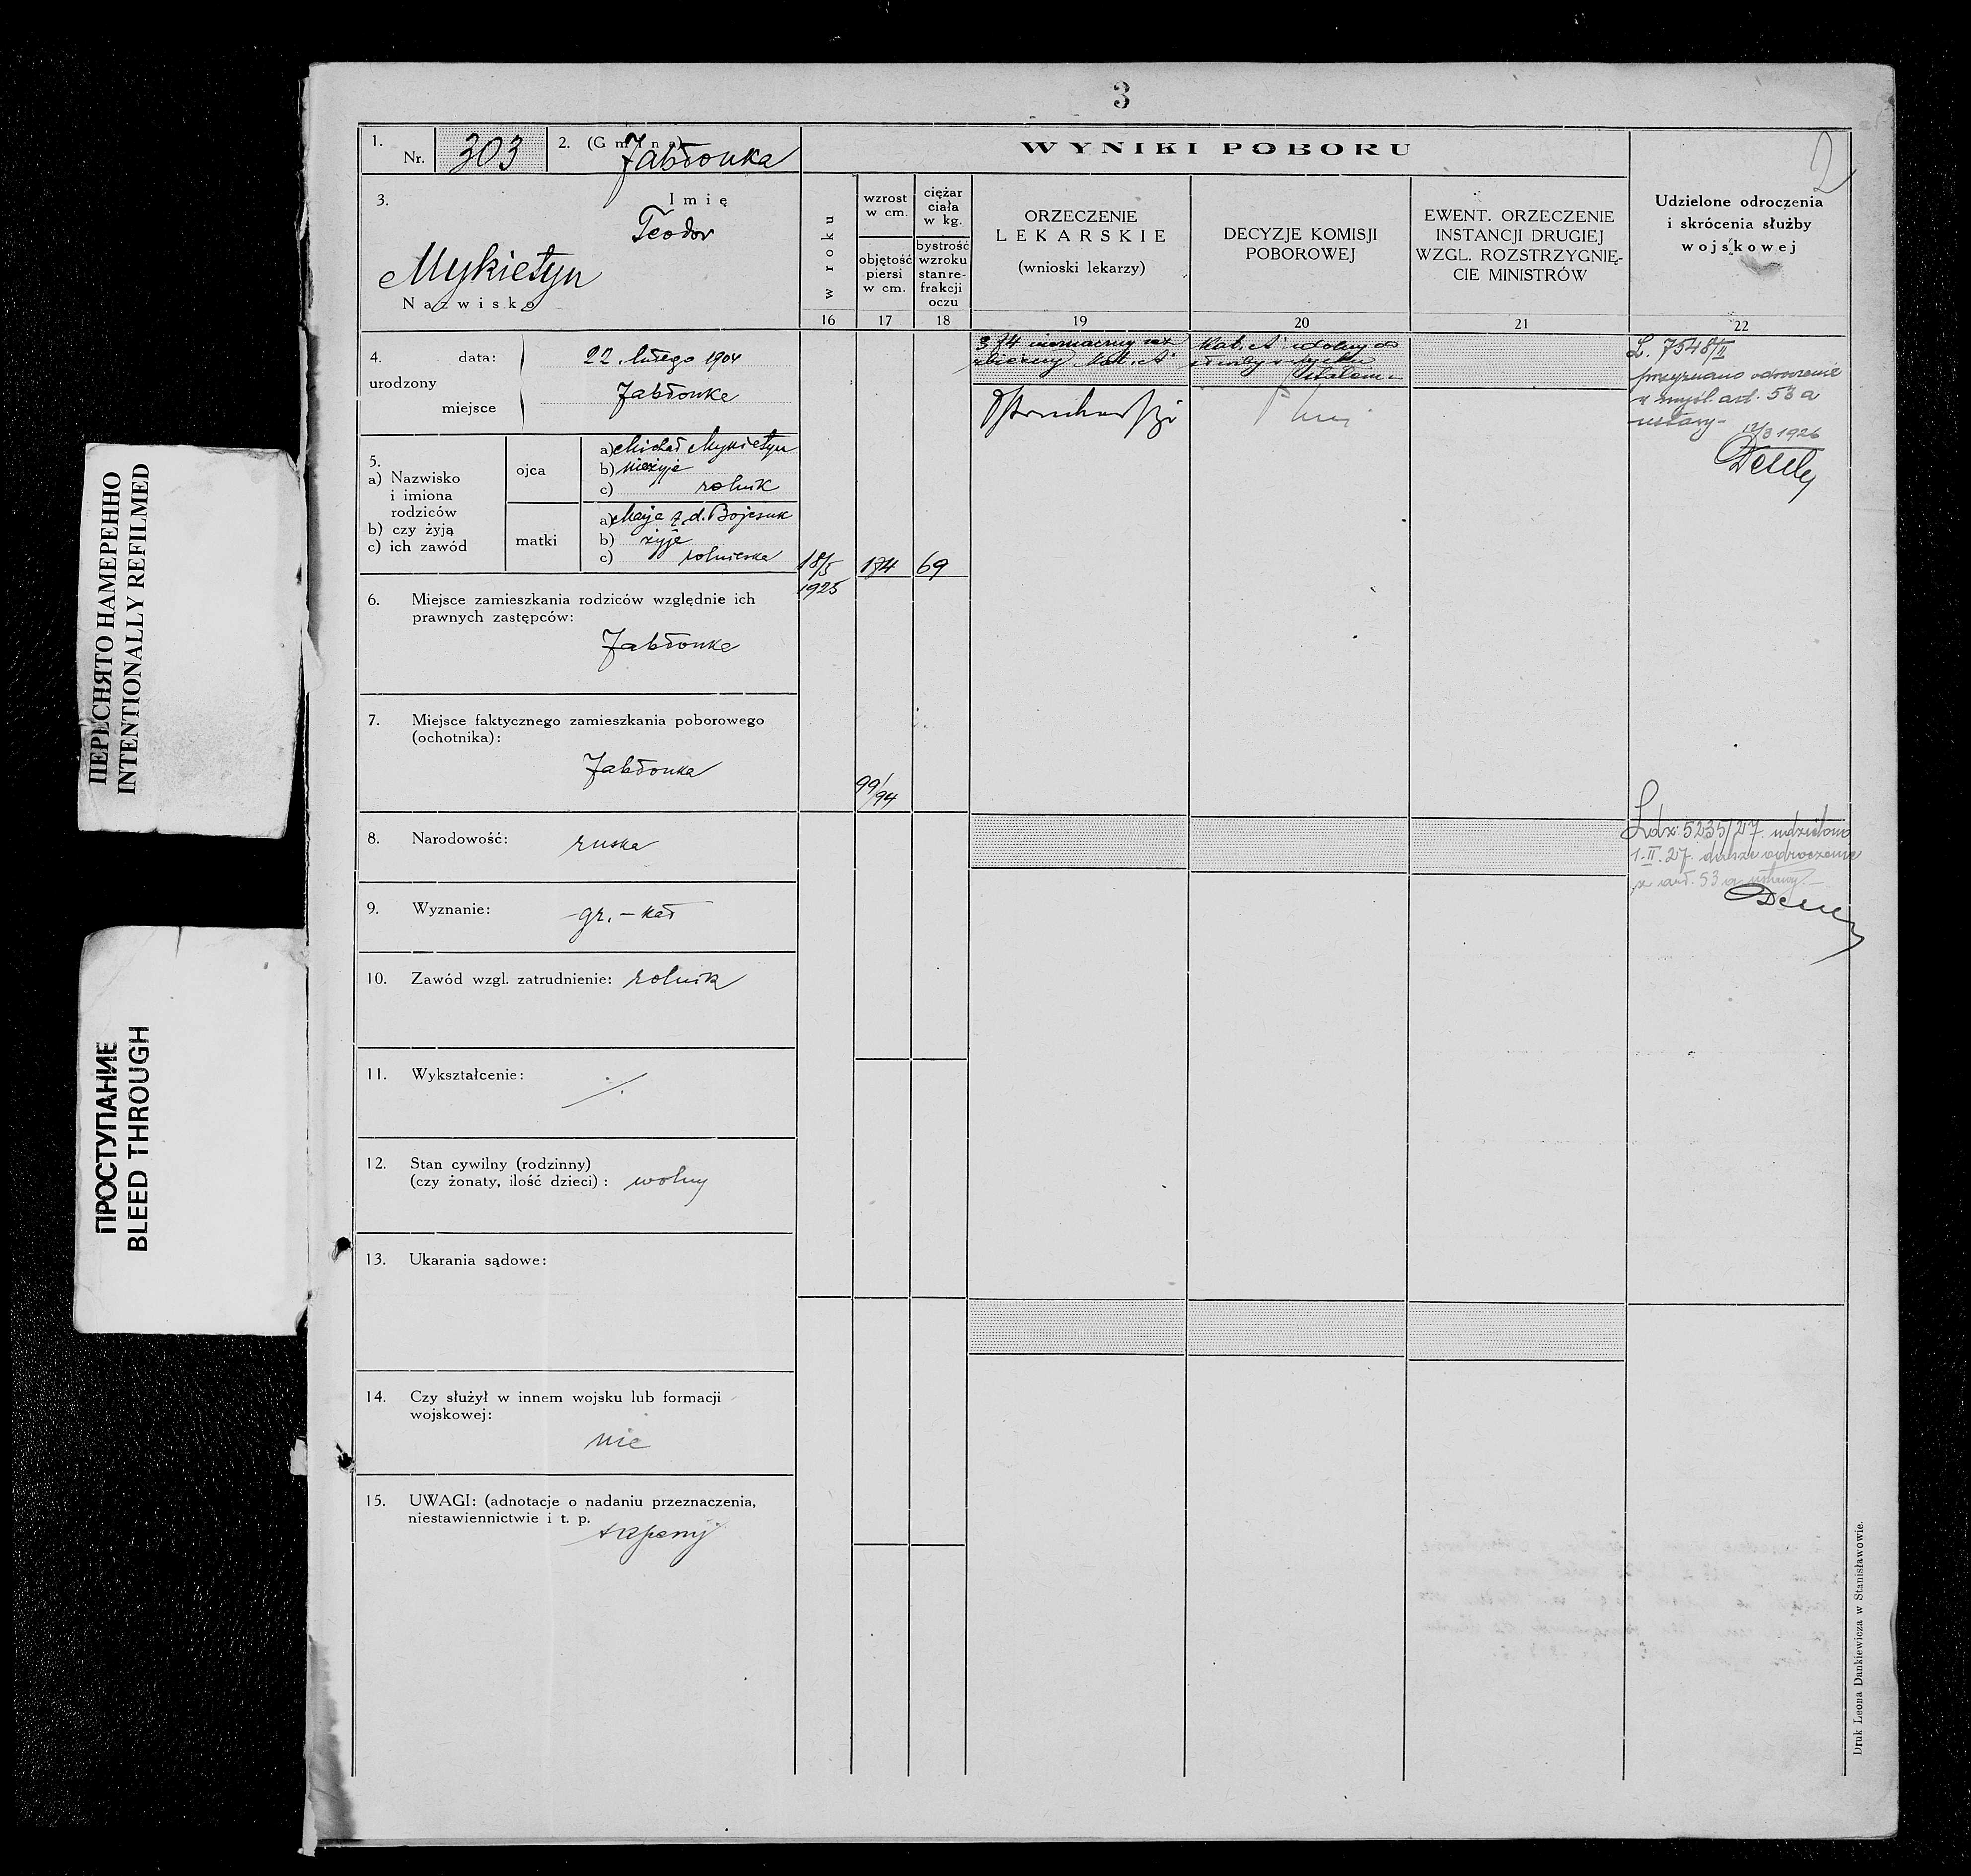 3
2
1.
Nr. 303
2. (Gmina) Jabłonka
WYNIKI POBORU
3.
Imię
Teodor
Mykietyn
Nazwisko
w roku
wzrost
w cm.
objętość
piersi
w cm.
ciężar
ciała
w kg.
bystrość
wzroku
stan re-
frakcji
oczu
ORZECZENIE
LEKARSKIE
(wnioski lekarzy)
DECYZJE KOMISJI
POBOROWEJ
EWENT. ORZECZENIE
INSTANCJI DRUGIEJ
WZGL. ROZSTRZYGNIĘ-
CIE MINISTRÓW
Udzielone odroczenia
i skrócenia służby
wojskowej
16 17 18 19 20 21 22
4.
urodzony
data: 22. lutego 1904
miejsce Jabłonka
5.
a) Nazwisko
i imiona
rodziców
b) czy żyją
c) ich zawód
ojca
a) Michał Mykietyn
b) nieżyje
c) rolnik
matki
a) Marja z d. Bojczuk
b) żyje
c) rolniczka
18/5
1925
174
69
99/94
kat. A
Kat. A zdolny do
służby
L. 7548/II
przyznano odroczenie
w myśl art. 53 a
ustawy
12/3 1926
6. Miejsce zamieszkania rodziców względnie ich
prawnych zastępców:
Jabłonka
7. Miejsce faktycznego zamieszkania poborowego
(ochotnika):
Jabłonka
8. Narodowość: ruska
Ldz. 5235/27. udzielono
1.II.27. dalsze odroczenie
z art. 53 a ustawy
9. Wyznanie: gr.-kat
10. Zawód wzgl. zatrudnienie: rolnik
11. Wykształcenie: ./.
12. Stan cywilny (rodzinny)
(czy żonaty, ilość dzieci): wolny
13. Ukarania sądowe:
14. Czy służył w innem wojsku lub formacji
wojskowej:
nie
15. UWAGI: (adnotacje o nadaniu przeznaczenia,
niestawiennictwie i t. p.
Druk Leona Dankiewicza w Stanisławowie.
ПЕРЕСНЯТО НАМЕРЕННО
INTENTIONALLY REFILMED
ПРОСТУПАНИЕ
BLEED THROUGH